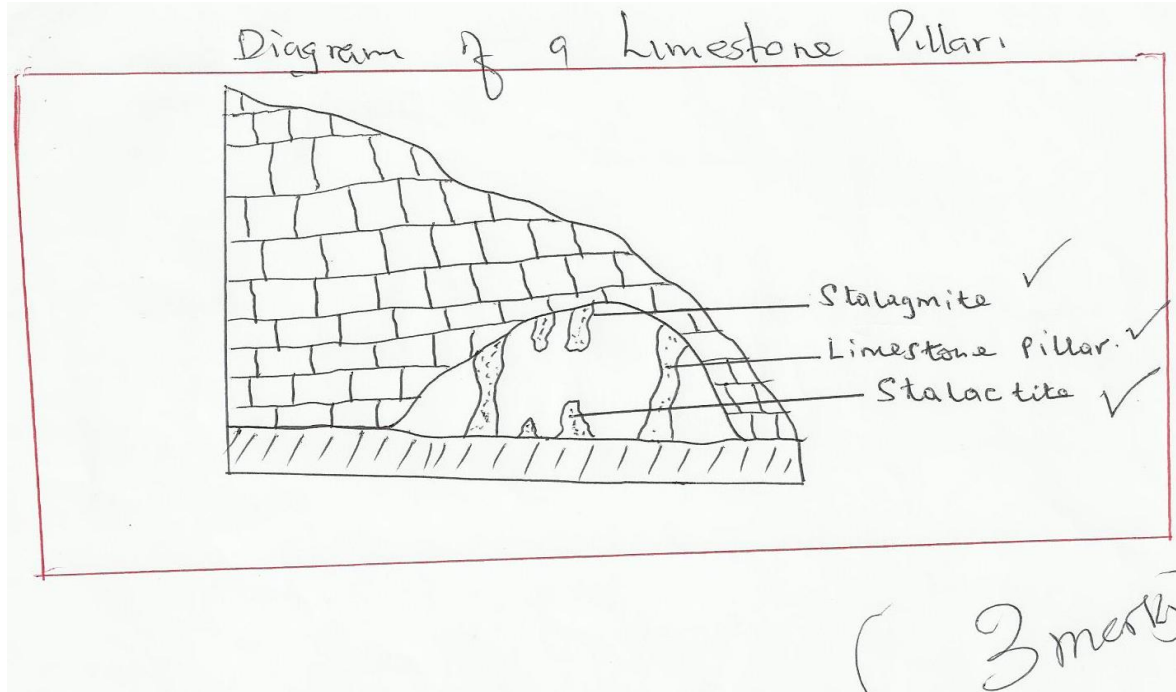 Diagram of a Limestone Pillar.
Stalagmite
Limestone Pillar.
Stalactite
( 3 marks